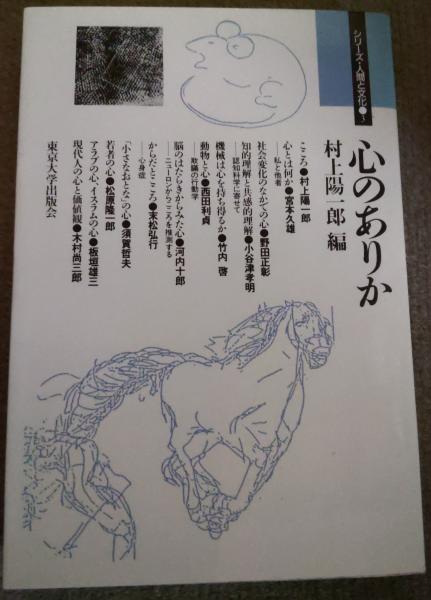 シリーズ・人間と文化●3
心のありか
村上陽一郎 編
こころ●村上陽一郎
心とは何か●宮本久雄
──私と他者
社会変化のなかでの心●野田正彰
知的理解と共感的理解●小谷津孝明
──認知科学に寄せて
機械は心を持ち得るか●竹内 啓
動物と心●西田利貞
──欺瞞の行動学
脳のはたらきからみた心●河内十郎
──ニューロンからこころを推測する
からだとこころ●末松弘行
──心身症
「小さなおとな」の心●須賀哲夫
若者の心●松原隆一郎
アラブの心、イスラムの心●板垣雄三
現代人の心と価値観●木村尚三郎
東京大学出版会